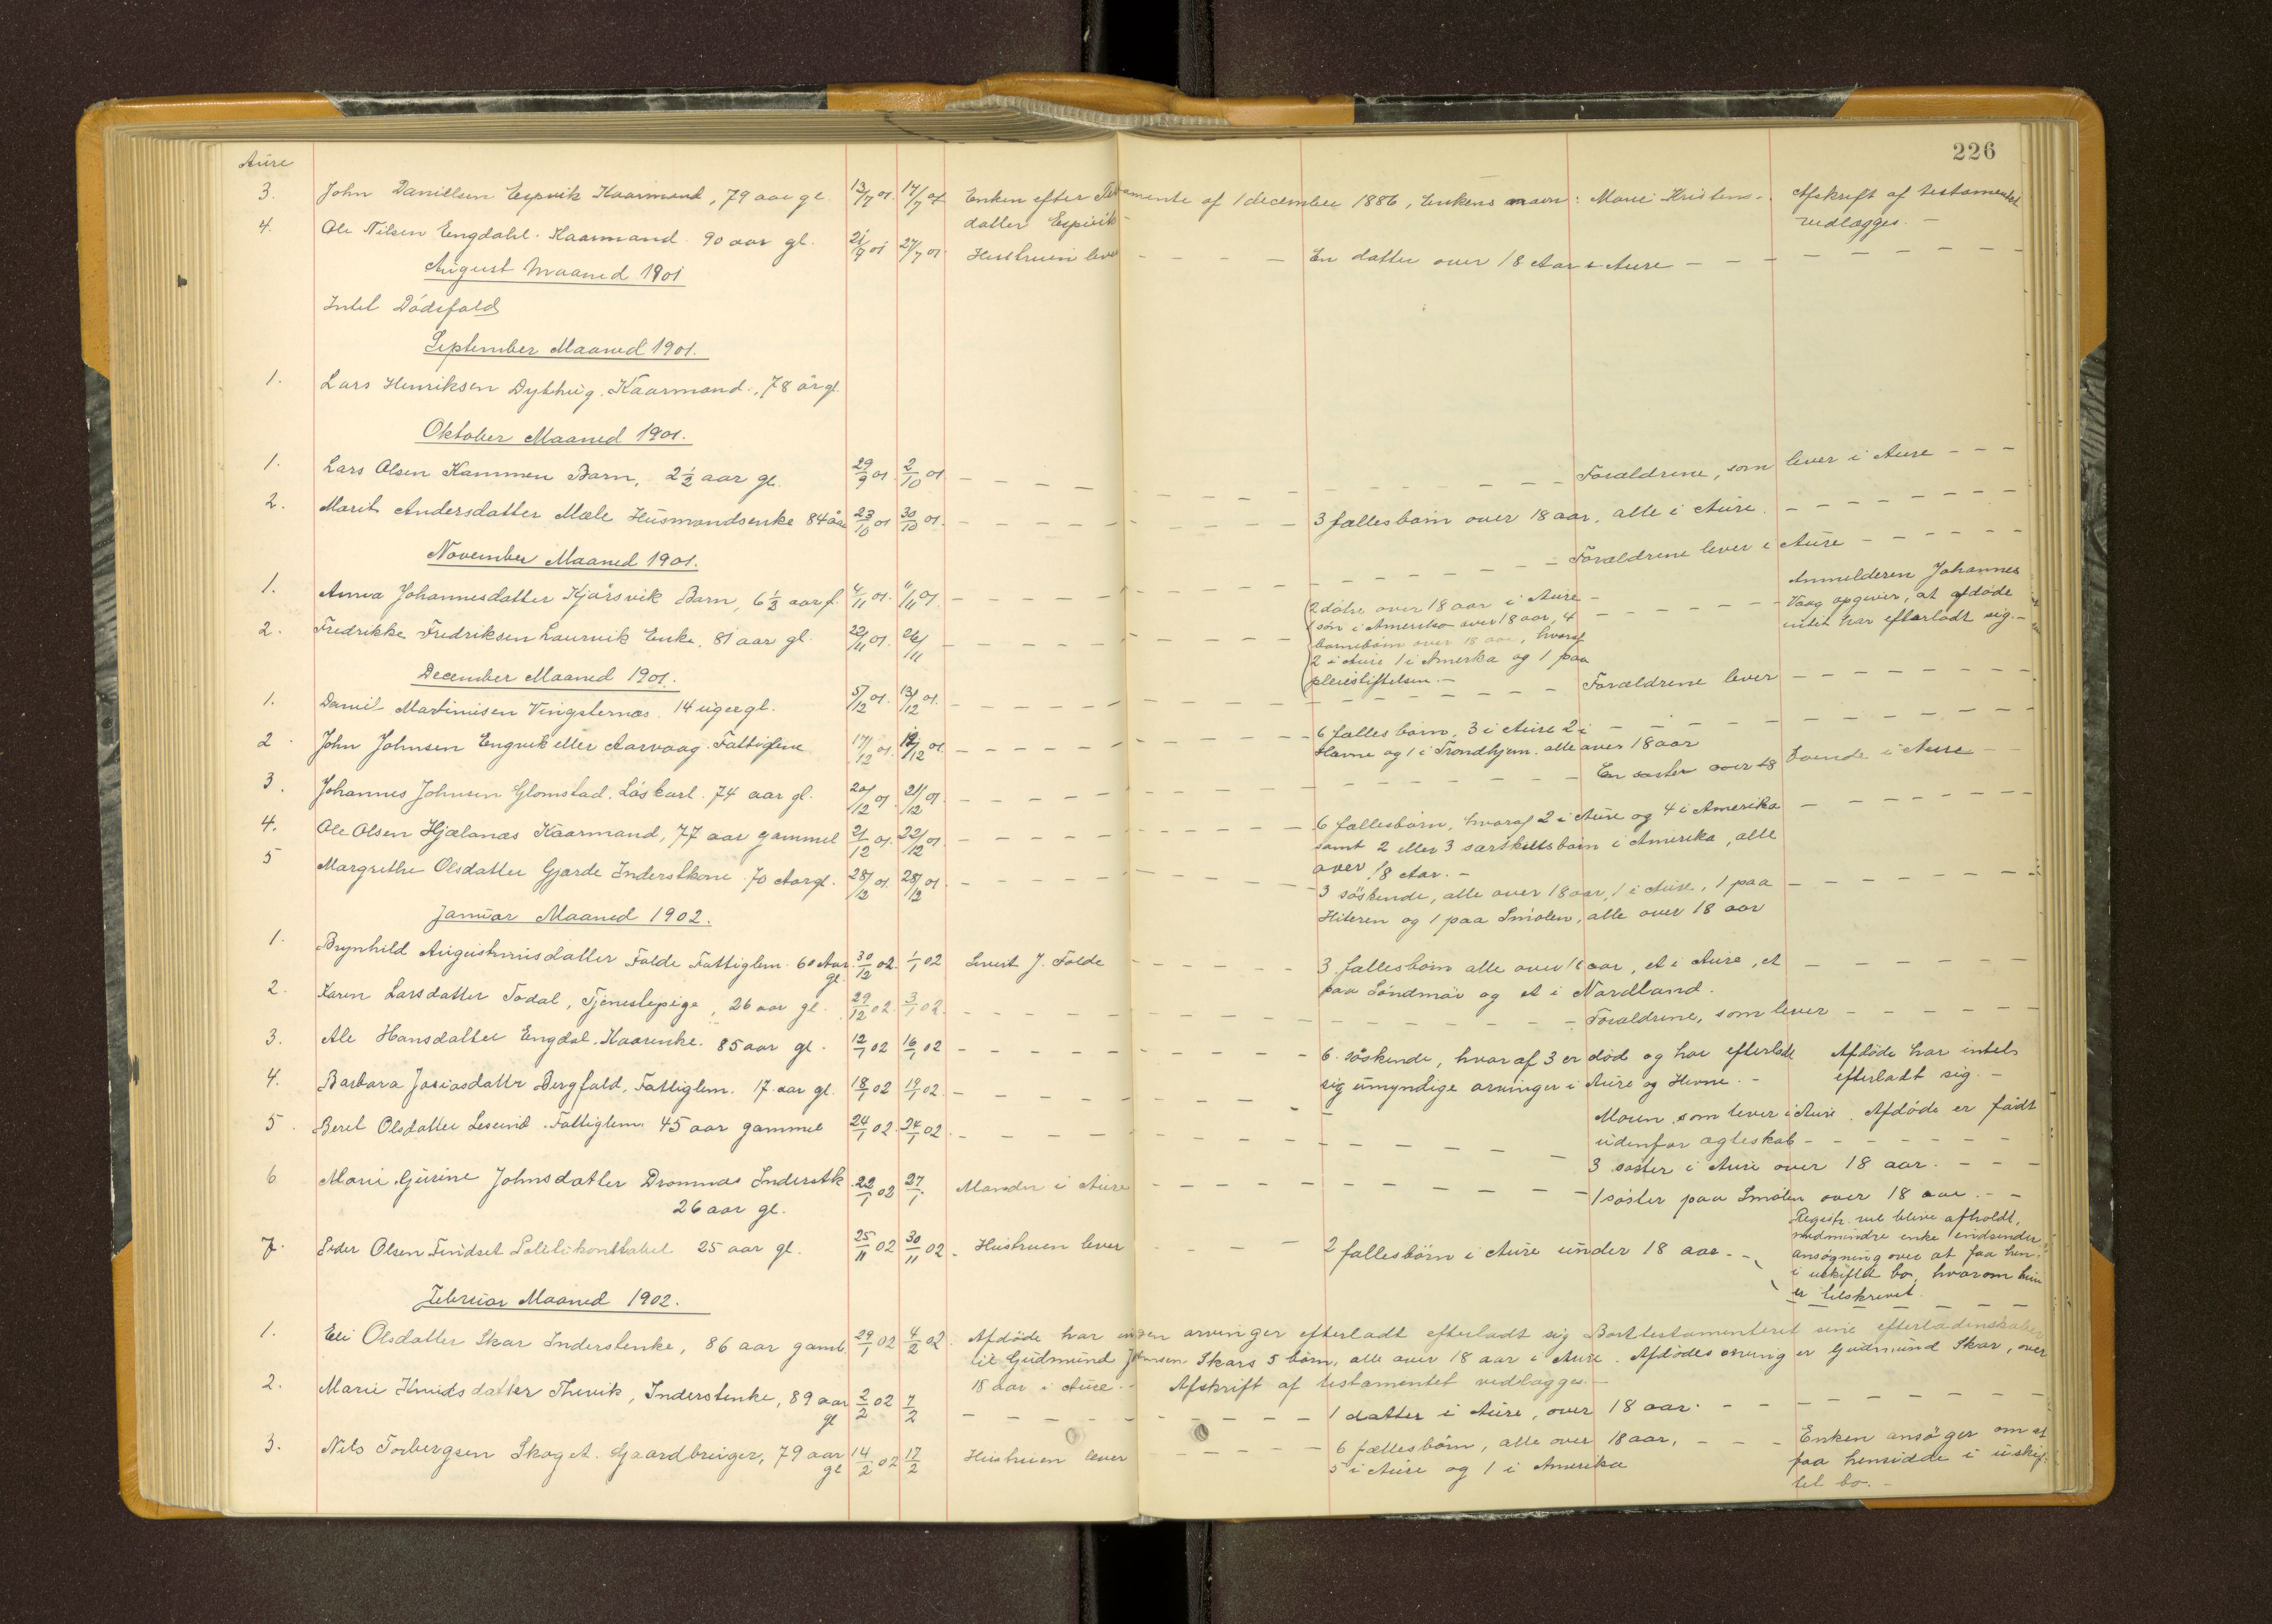 226
Aure
3. John Daniellsen Espvik Kaarmand, 79 aar gl. 13/7 01. 17/7 01 Enken efter Testamente af 1 december 1886, Enkens navn: Marie Kristens- Afskrift af testamentet
datter Espvik - vedlægges. -
4. Ole Nilsen Engdahl. Kaarmand. 90 aar gl. 21/7 01 27/7 01. Hustruen lever - - - - En datter over 18 Aar i Aure - - - - - - - -
August Maaned 1901
Intet Dödsfald
September Maaned 1901.
1. Lars Henriksen Dythug. Kaarmand., 78 år gl.
Oktober Maaned 1901.
1. Lars Olsen Kammen Barn, 2½ aar gl. 29/9 01. 2/10 01 - - - - Forældrene, som lever i Aure - - -
2. Marit Andersdatter Mæle Husmandsenke 84 åar 23/10 01 30/10 01. - - - - 3 fællesbörn over 18 aar, alle i Aure. - - - -
November Maaned 1901.
1. Anna Johannesdatter Kjårsvik Barn, 6½ aar gl. 4/11 01. 11/11 01. - - - - Forældrene lever i Aure - - - -
2. Fredrikke Fredriksen Laurvik Enke, 81 aar gl. 22/11 01. 26/11 - - - - 2 dötre over 18 aar i Aure -
1 sön i Amerika over 18 aar, 4
barnebörn over 18 aar, hvoraf
2 i Aure 1 i Amerika og 1 paa
pleiestiftelsen. -
Anmelderen Johannes
Vaag opgiver, at afdöde
intet har efterladt sig. -
December Maaned 1901.
1. Daniel Martinusen Vingsternæs. 14 uger gl. 5/12 01. 13/12 01. - - - - Forældrene lever - - - -
2. John Johnsen Engvik eller Aarvaag. Fattiglem 17/12 01. 18/12 01. - - - - 6 fælles börn, 3 i Aure 2 i - - - -
Hevne og 1 i Trondhjem. alle over 18 aar
3. Johannes Johnsen Glomstad. Löskarl. 74 aar gl. 20/12 01. 21/12 01. - - - - En söster over 18 boende i Aure - -
4. Ole Olsen Hjælnæs Kaarmand, 77 aar gammel 21/12 01. 22/12 01. - - - - 6 fællesbörn, hvoraf 2 i Aure og 4 i Amerika - - - -
samt 2 eller 3 særskiltsbörn i Amerika, alle
over 18 Aar. -
5 Margrethe Olsdatter Gjærde Inderstkone 70 Aar gl. 28/12 01. 28/12 01. - - - - 3 söskende, alle over 18 aar, 1 i Aure, 1 paa - - - -
Hiteren og 1 paa Smölen, alle over 18 aar
Januar Maaned 1902.
1. Brynhild Augustinusdatter Folde Fattiglem. 60 Aar gl. 30/12 02. 1/1 02 Sivert J. Folde - - - - 3 fællesbörn alle over 18 aar, et i Aure, et - - - -
paa Söndmör og et i Nordland.
2. Karen Larsdatter Todal, Tjenestepige, 26 aar gl. 29/12 02. 3/1 02. - - - - Forældrene, som lever - - - -
3. Ale Hansdatter Engdal. Kaarenke. 85 aar gl. 12/1 02 16/1 02 - - - - 6. söskende, hvoraf 3 er död og har efterladt Afdöde har intet
sig umyndige arvinger i Aure og Hevne. - efterladt sig. -
4. Barbara Josiasdattr Bergfald, Fattiglem. 17 aar gl. 18/1 02 19/1 02. - - - - Moren som lever i Aure. Afdöde er födt
udenfor ægteskab - - - -
5. Beret Olsdatter Leseund. Fattiglem. 45 aar gammel 24/1 02. 24/1 02. - - - - 3 söster i Aure over 18 aar. - - -
6 Marie Gurine Johnsdatter Dromnæs Inderstk. 22/1 02 27/1. Manden i Aure - - - - 1 söster paa Smölen over 18 aar. - -
26 aar gl.
7. Peder Olsen Findset Politikonstabel 25 aar gl. 25/11 02 30/11 02. Hustruen lever - - - 2 fællesbörn i Aure under 18 aar - -
Registr. vil blive afholdt,
medmindre enke indsender
ansögning over at faa hen.
i uskiftet bo, hvorom hun
er tilskrevet.
Februar Maaned 1902.
1. Eli Olsdatter Skar Inderstenke, 86 aar gaml. 29/1 02 4/2 02. Afdöde har ingen arvinger efterladt efterladt sig Borttestamenteret sine efterladenskaber
til Gudmund Johnsen Skars 5 börn, alle over 18 aar i Aure. Afdödes arving er Gudmund Skar, over
18 aar i Aure. - Afskrift af testamentet vedlægges. -
2. Marie Knudsdatter Thevik, Inderstenke, 89 aar gl 2/2 02 7/2 - - - - 1 datter i Aure, over 18 aar. - - - -
3. Nils Torbergsen Skoget. Gaardbruger, 79 aar gl 14/2 02 17/2 Hustruen lever - - - - 6 fællesbörn, alle over 18 aar, - - - Enken ansöger om at
5 i Aure og 1 i Amerika faa hensidde i uskif-
tet bo. -